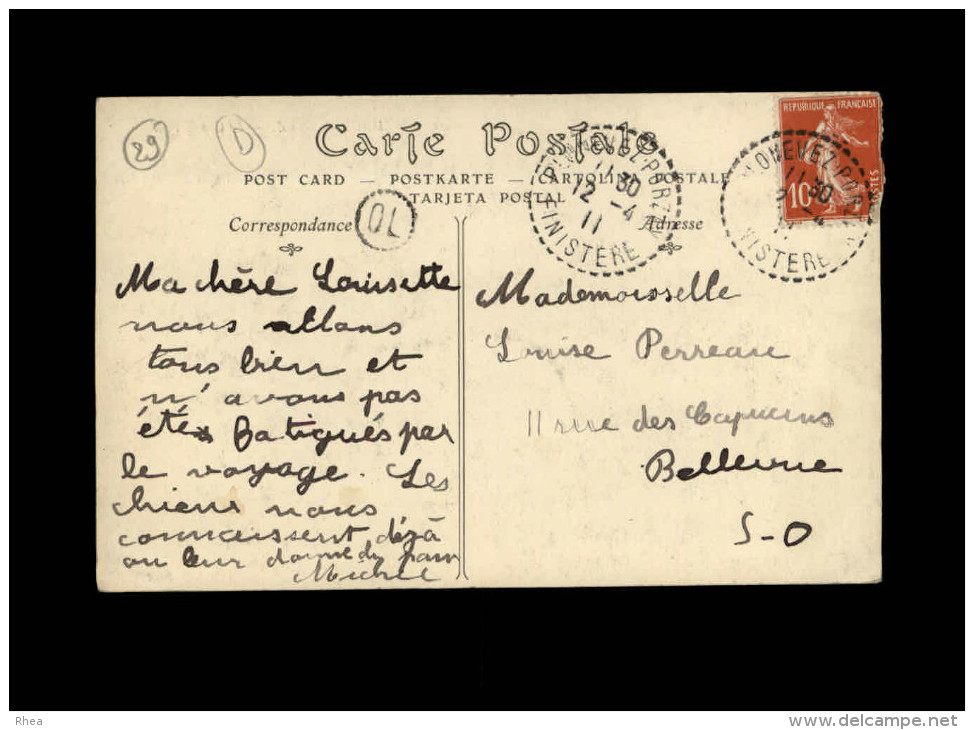 29
D
Carte Postale
POST CARD — POSTKARTE — CARTOLINA POSTALE
TARJETA POSTAL
Correspondance
OL
Adresse
PLONEVEZ-PORZAY
11 30
12 -4
11
FINISTERE
REPUBLIQUE FRANÇAISE
10
POSTES
PLONEVEZ-PORZAY
11 30
FINISTERE
Ma chère Louisette
nous allons
tous bien et
n'avons pas
étés fatigués par
le voyage. Les
chiens nous
connaissent déjà
on leur donne du pain
Michel
Mademoisselle
Louise Perreau
11 rue des Capucins
Bellevue
S-O
Rhea
www.delcampe.net